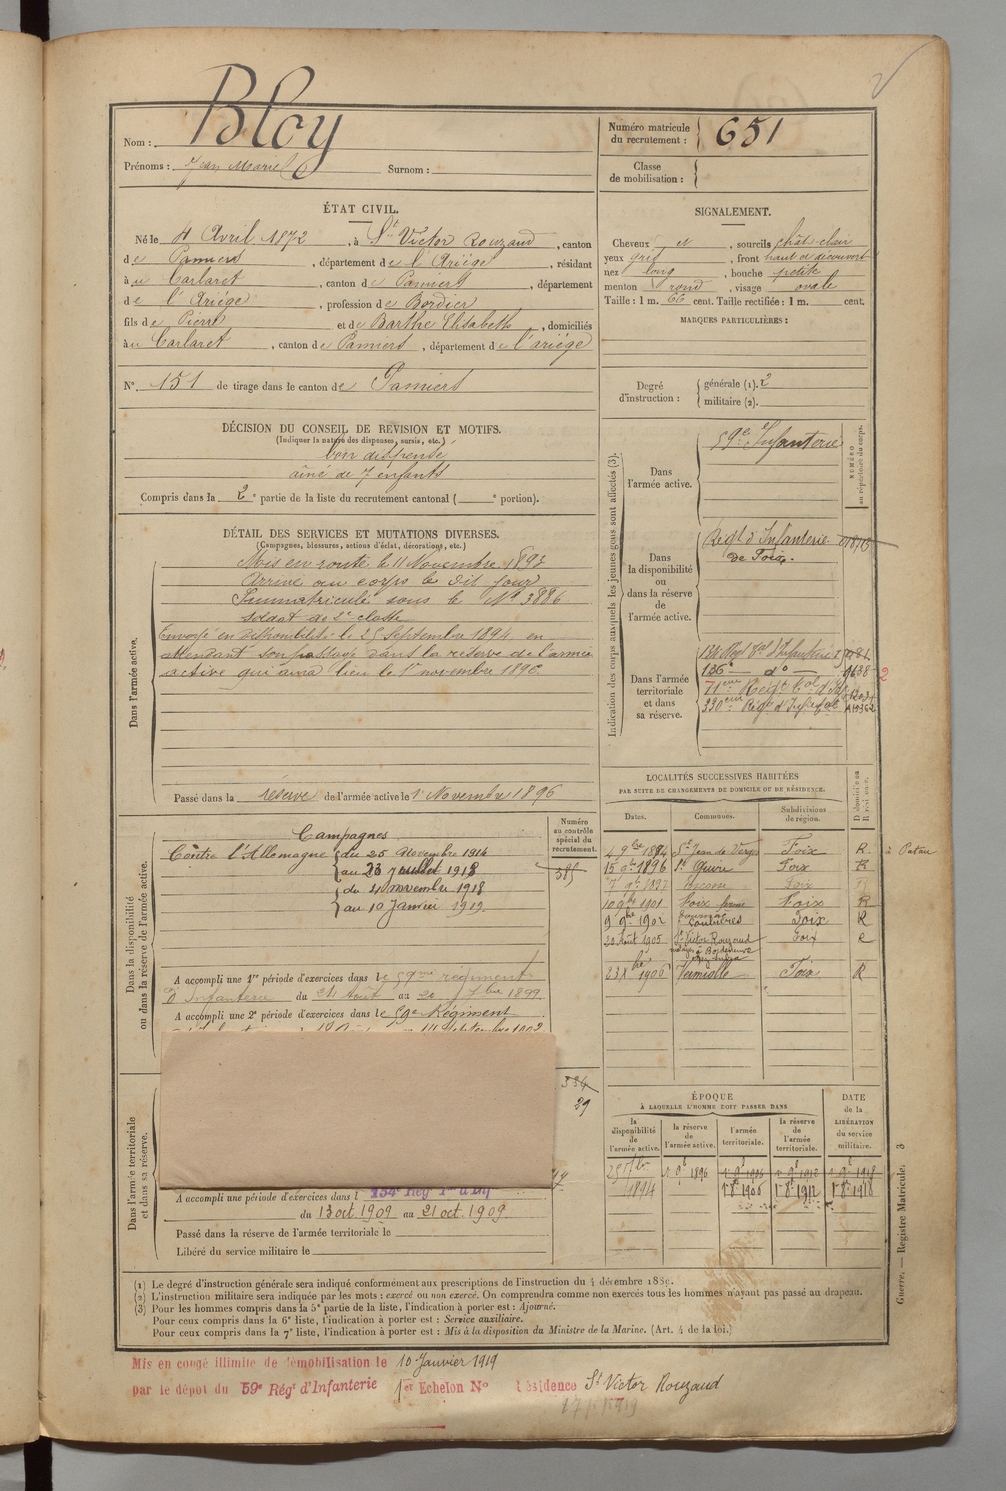 Nom : Bloy
Prénoms : Jean Marie Surnom :
Numéro matricule du recrutement : 651
Classe de mobilisation :
ÉTAT CIVIL.
Né le 4 Avril 1872, à St Victor Rouzaud, canton
de Pamiers, département de l'Ariège, résidant
à u Carlaret, canton de Pamiers, département
de l'Ariège, profession de Bordier
fils de Pierre et de Barthe Elisabeth, domiciliés
à u Carlaret, canton de Pamiers, département de l'ariège
N° 151 de tirage dans le canton de Pamiers
SIGNALEMENT.
Cheveux et, sourcils chât-clair
yeux gris, front haut et découvert
nez long, bouche petite
menton rond, visage ovale
Taille : 1 m. 66 cent. Taille rectifiée : 1 m. cent.
MARQUES PARTICULIÈRES :
Degré d'instruction : générale (1). 2
militaire (2).
DÉCISION DU CONSEIL DE REVISION ET MOTIFS.
(Indiquer la nature des dispenses, sursis, etc.)
bon dispensé
aîné de 7 enfants
Compris dans la 2e partie de la liste du recrutement cantonal ( e portion).
DÉTAIL DES SERVICES ET MUTATIONS DIVERSES.
(Campagnes, blessures, actions d'éclat, décorations, etc.)
Dans l'armée active.
Mis en route le 11 Novembre 1893
Arrivé au corps le dit jour
Immatriculé sous le N° 3886
Soldat de 2e classe
Envoyé en disponibilité le 25 Septembre 1894 en
attendant son passage dans la réserve de l'armée
active qui aura lieu le 1er novembre 1896.
Passé dans la réserve de l'armée active le 1er Novembre 1896
Indication des corps auxquels les jeunes gens sont affectés (3).
NUMÉRO au répertoire du corps.
Dans l'armée active.
59e d'Infanterie
Dans la disponibilité ou dans la réserve de l'armée active.
Régt d'Infanterie
de Foix.
Dans l'armée territoriale et dans sa réserve.
134 Régt Tal d'Infanterie
136e do
71eme Régt Tal d'Inf
330eme Régt d'Inf
Dans la disponibilité ou dans la réserve de l'armée active.
Numéro au contrôle spécial du recrutement.
385
Campagnes
Contre l'Allemagne du 25 Novembre 1914
au 23 juillet 1918
du 4 novembre 1918
au 10 Janvier 1919.
A accompli une 1re période d'exercices dans le 59me régiment
d'Infanterie du 24 Août au 20 7bre 1899
A accompli une 2e période d'exercices dans le 59e Régiment
LOCALITÉS SUCCESSIVES HABITÉES
PAR SUITE DE CHANGEMENTS DE DOMICILE OU DE RÉSIDENCE.
Dates. Communes. Subdivisions de région. D domicile ou R résidence.
4 9bre 1894 St Jean de Verges Foix R à Patau
15 9bre 1896 Foix R
1897 Foix
10 9bre 1901 Foix Foix R
9 9bre 1902 Foix R
20 Août 1905 St Victor Rouzaud Foix R
23 Xbre 1906 Verniolle Foix R
Dans l'armée territoriale et dans sa réserve.
384
29
A accompli une période d'exercices dans l 134e Rég
du 13 oct 1909 au 21 oct. 1909.
Passé dans la réserve de l'armée territoriale le
Libéré du service militaire le
ÉPOQUE
À LAQUELLE L'HOMME DOIT PASSER DANS
la disponibilité de l'armée active. la réserve de l'armée active. l'armée territoriale. la réserve de l'armée territoriale.
DATE de la LIBÉRATION du service militaire.
25 7bre 1894 1er 9bre 1896 1er 9bre 1906 1er 9bre 1912 1er 9bre 1918
1er 8bre 1906 1er 8bre 1912 1er 8bre 1918
(1) Le degré d'instruction générale sera indiqué conformément aux prescriptions de l'instruction du 4 décembre 1889.
(2) L'instruction militaire sera indiquée par les mots : exercé ou non exercé. On comprendra comme non exercés tous les hommes n'ayant pas passé au drapeau.
(3) Pour les hommes compris dans la 5e partie de la liste, l'indication à porter est : Ajourné.
Pour ceux compris dans la 6e liste, l'indication à porter est : Service auxiliaire.
Pour ceux compris dans la 7e liste, l'indication à porter est : Mis à la disposition du Ministre de la Marine. (Art. 4 de la loi.)
Guerre. — Registre Matricule. 3
Mis en congé illimité de démobilisation le 10 Janvier 1919
par le dépôt du 59e Régt d'Infanterie 1er Echelon N° Résidence St Victor Rouzaud